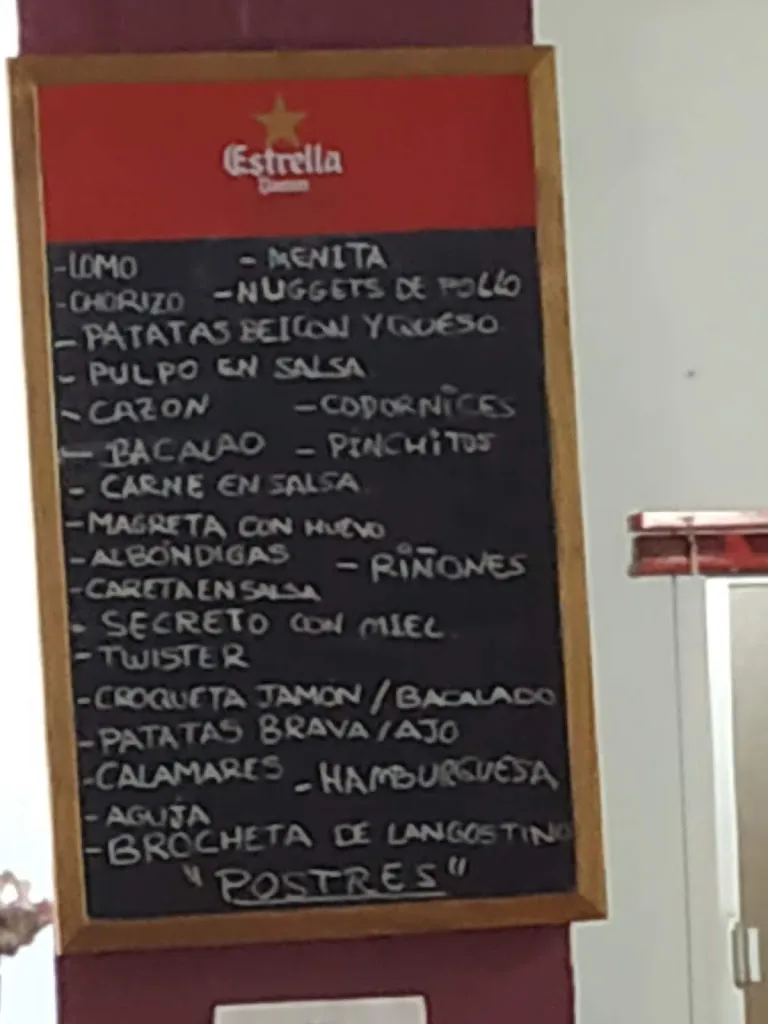 Estrella
Damm
-LOMO - MENITA
-CHORIZO -NUGGETS DE POLLO
- PATATAS BEICON Y QUESO
- PULPO EN SALSA
- CAZON - CODORNICES
- BACALAO - PINCHITOS
- CARNE EN SALSA
-MAGRETA CON HUEVO
-ALBÓNDIGAS - RIÑONES
-CARETA EN SALSA
- SECRETO CON MIEL
-TWISTER
-CROQUETA JAMÓN/BACALADO
-PATATAS BRAVA/AJO
-CALAMARES - HAMBURGUESA
- AGUJA
-BROCHETA DE LANGOSTINO
"POSTRES"